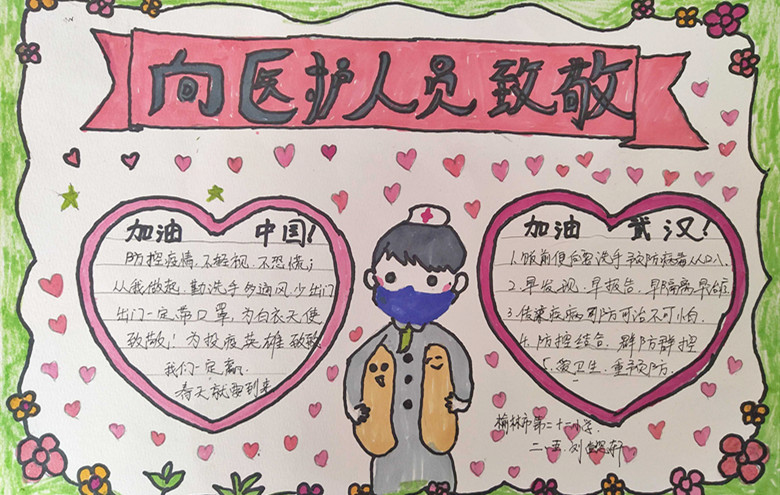 向医护人员致敬
加油 中国!
防控疫情,不轻视,不恐慌;
从我做起,勤洗手勿通风,少出门
出门一定带口罩,为白衣天使
致敬!为投疫英雄致敬
我们一定赢,
春天就要到来
加油 武汉!
1.饭前便后要洗手预防病毒从口入
2.早发现.早报告,早隔离早治疗
3.传染疫病可防可治不可怕.
4.防控结合,群防群控
5.爱卫生,重预防.
榆林市第二十二小学.
二、五.刘 轩